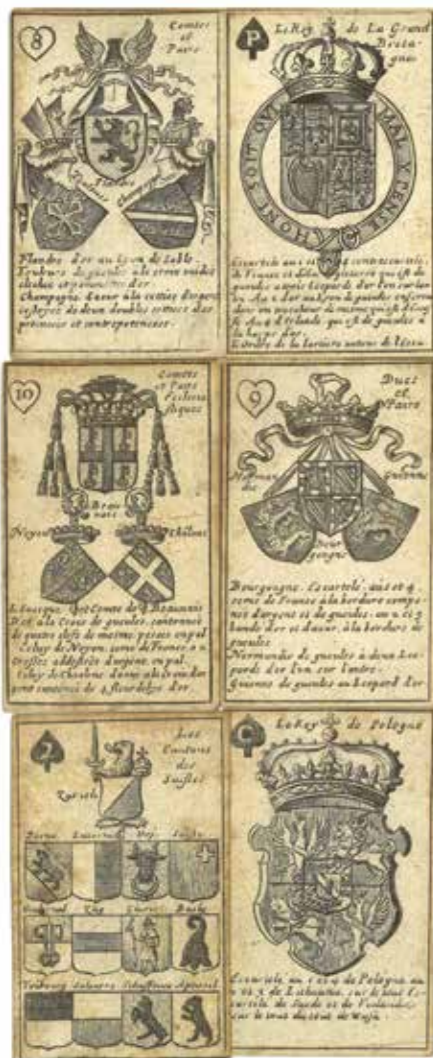 8
Comtes
et
Pairs
Flandre
Toulouse
Champagne
Flandre d'or au Lyon de sable
Toulouse de gueules à la croix vuidée
clechée et pommettée d'or
Champagne d'azur à la cottice d'argent
costoyée de deux doubles cottices
potencees et contrepotencees.
P
Le Roy de La Grand
Bretagne
HONI SOIT QUI MAL Y PENSE
Escartelé au 1 et 4 contrescartelé
de France et d'Angleterre qui est de
gueules a trois Leopards d'or l'un sur l'au
Au 2 d'or au Lyon de gueules enfermé
dans un trescheur de mesme qui est d'Escos
se Au 3 d'Irlande qui est de gueules à
la harpe d'or.
L'Ordre de la Jartiere autour de l'Escu
10
Comtes
et Pairs
Ecclesia
stiques
Beau
vais
Noyon
Châlons
L'Evesque et Comte de Beauvais
D'or à la Croix de gueules, cantonnée
de quatre clefs de mesme posees en pal
Celuy de Noyon, semé de France a 2
Crosses addossées d'argent en pal.
Celuy de Chalons d'azur à la Croix d'ar
gent cantonée de 4 fleurs de lis d'or
9
Ducs
et
Pairs
Norman
die
Guienne
Bour
gongne
Bourgongne. Escartelé, au 1 et 4
semé de France à la bordure compo
née d'argent et de gueules, au 2 et 3
bandé d'or et d'azur, à la bordure de
gueules
Normandie de gueules à deux Leo
pards d'or l'un sur l'autre.
Guienne de gueules au Leopard d'or.
2
Les
Cantons
des
Suisses
Zurich
Berne Lucerne Ury Suitz
Zug Glaris Basle
Fribourg Soleurre Schaffouse Appensel
C
Le Roy de Pologne
Escartelé au 1 et 4 de Pologne au
2 et 3 de Lithuanie, sur le tout Es
cartelé de Suede et de
sur le tout du tout de Wasa